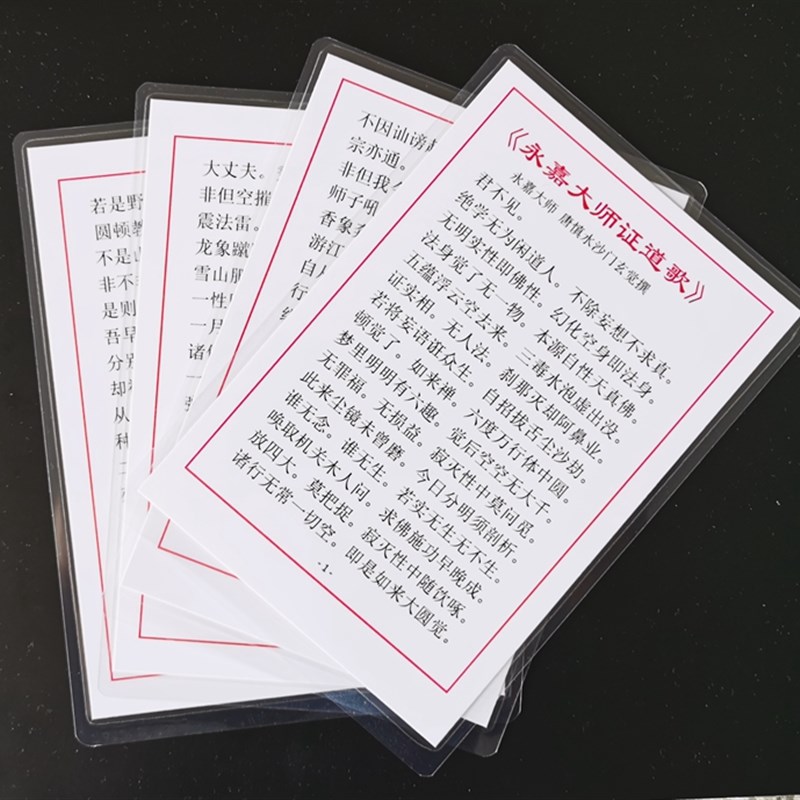 《永嘉大师证道歌》
永嘉大师 唐慎水沙门玄觉撰
君不见。
绝学无为闲道人。 不除妄想不求真。
无明实性即佛性。 幻化空身即法身。
法身觉了无一物。 本源自性天真佛。
五蕴浮云空去来。 三毒水泡虚出没。
证实相。无人法。 刹那灭却阿鼻业。
若将妄语诳众生。 自招拔舌尘沙劫。
顿觉了。如来禅。 六度万行体中圆。
梦里明明有六趣。 觉后空空无大千。
无罪福。无损益。 寂灭性中莫问觅。
此来尘镜未曾磨。 今日分明须剖析。
谁无念。谁无生。 若实无生无不生。
唤取机关木人问。 求佛施功早晚成。
放四大。莫把捉。 寂灭性中随饮啄。
诸行无常一切空。 即是如来大圆觉。
-1-
不因讪谤
宗亦通。
非但我
师子吼
香象
游江
自
行
大丈夫。
非但空摧
震法雷。
龙象蹴
雪山肥
一性
一月
诸
若是野
圆顿教
不是山
非不
是则
吾早
分别
却
从
种